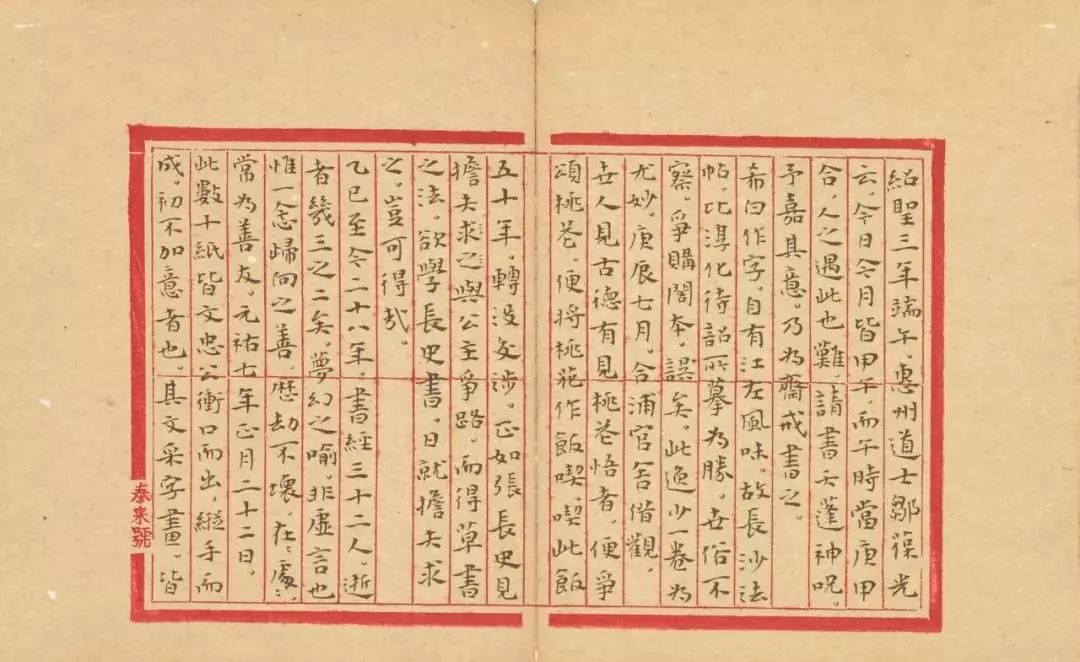 紹聖三年端午。惠州道士鄒葆光
云。今日今月皆甲午。而午時當庚甲
合。人之遇此也難。請書天蓬神呪。
予嘉其意。乃為齋戒書之。
希白作字。自有江左風味。故長沙法
帖。比淳化待詔所摹為勝。世俗不
察。爭購閣本。誤矣。此逸少一卷為
尤妙。庚辰七月。合浦官舍借觀。
世人見古德有見桃花悟者。便爭
頌桃花。便將桃花作飯喫。喫此飯
五十年。轉沒交涉。正如張長史見
擔夫求之與公主爭路。而得草書
之法。欲學長史書。日就擔夫求
之。豈可得哉。
乙巳至今二十八年。書經三十二人。逝
者幾三之二矣。夢幻之喻。非虛言也
惟一念歸向之善。歷劫不壞。在〻處〻
常為善友。元祐七年正月二十二日。
此數十紙皆文忠公衝口而出。縱手而
成。初不加意者也。其文采字畫。皆
泰來號